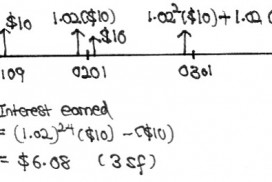 $10 1.02($10) $10 1.02²($10)+1.02 (
109 0201 0301
Interest earned
= (1.02)²⁴($10) - ($10)
= $6.08 (3 sf)